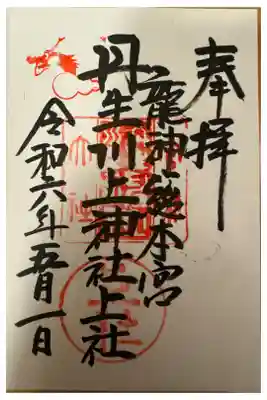 奉拝
竜神総本宮
丹生川上神社上社
令和六年五月一日